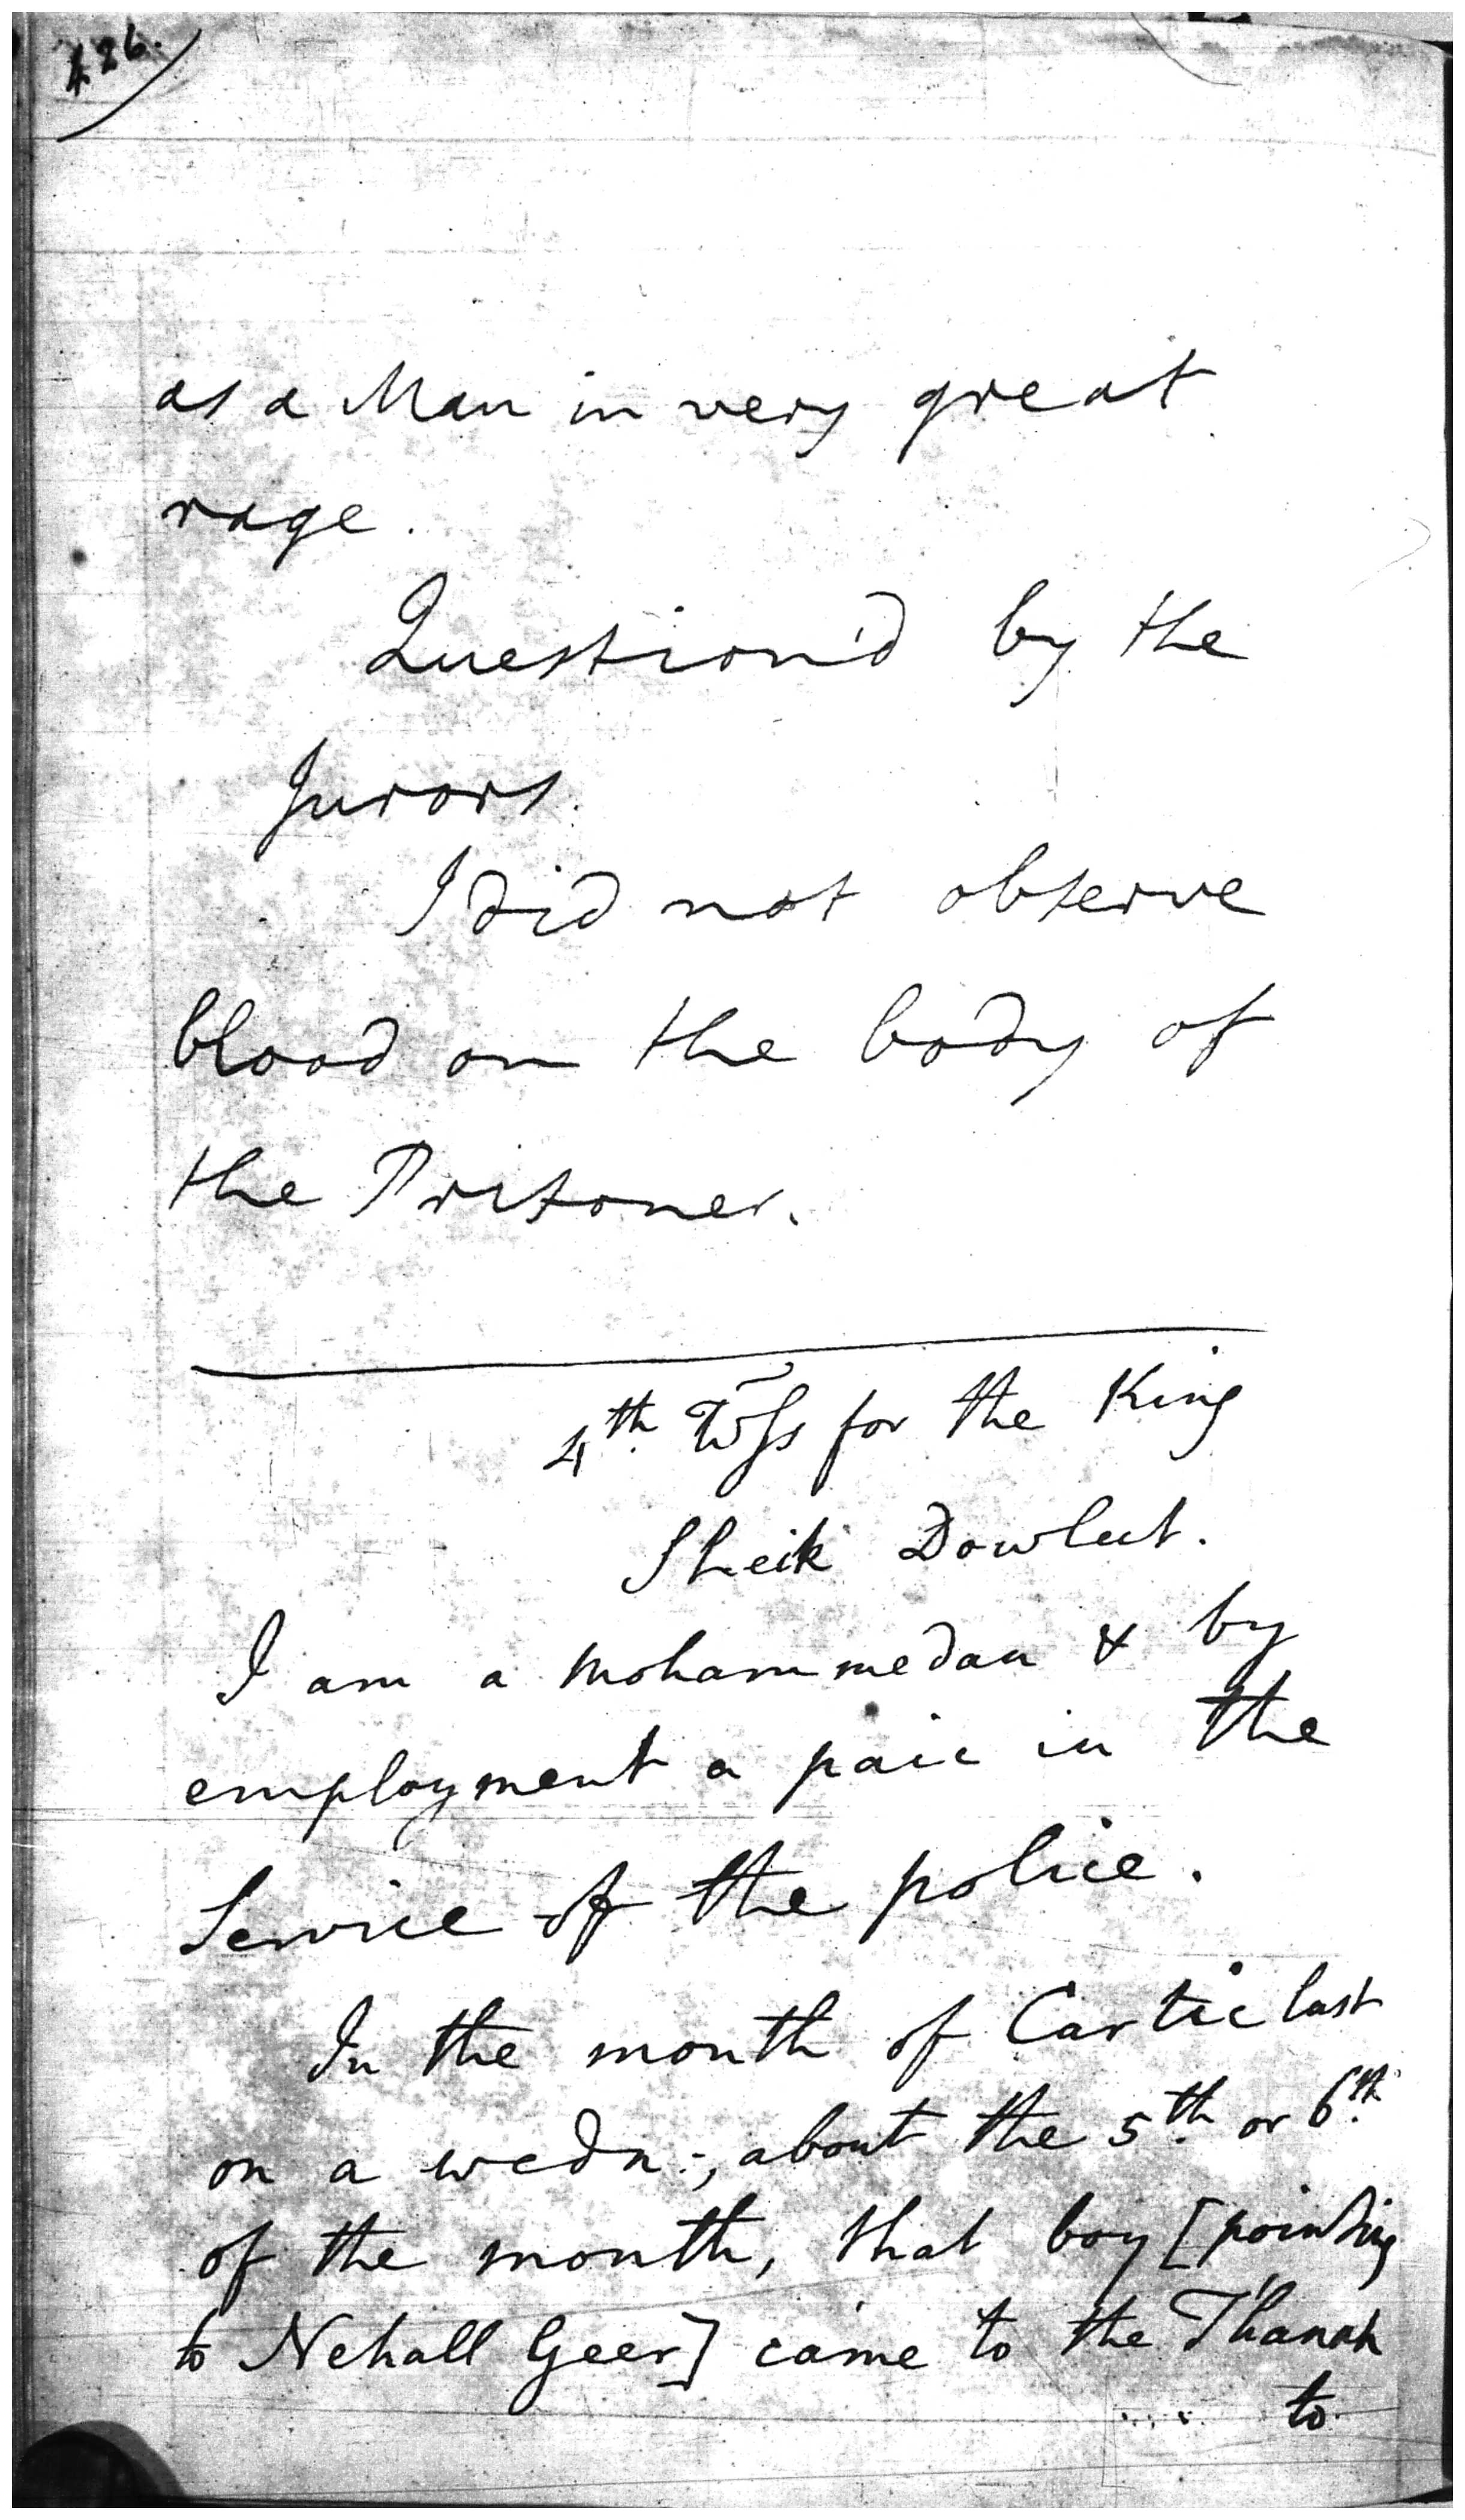 426.
as a Man in very great
rage.
Question'd by the
Jurors.
I did not observe
blood on the body of
the Prisoner.
4th Wss for the King
Sheik Dowlut.
I am a Mohammedan & by
employment a paic in the
Service of the police.
In the month of Cartic last
on a wedn:, about the 5th or 6th
of the month, that boy [pointing
to Nehall Geer] came to the Thanah
to